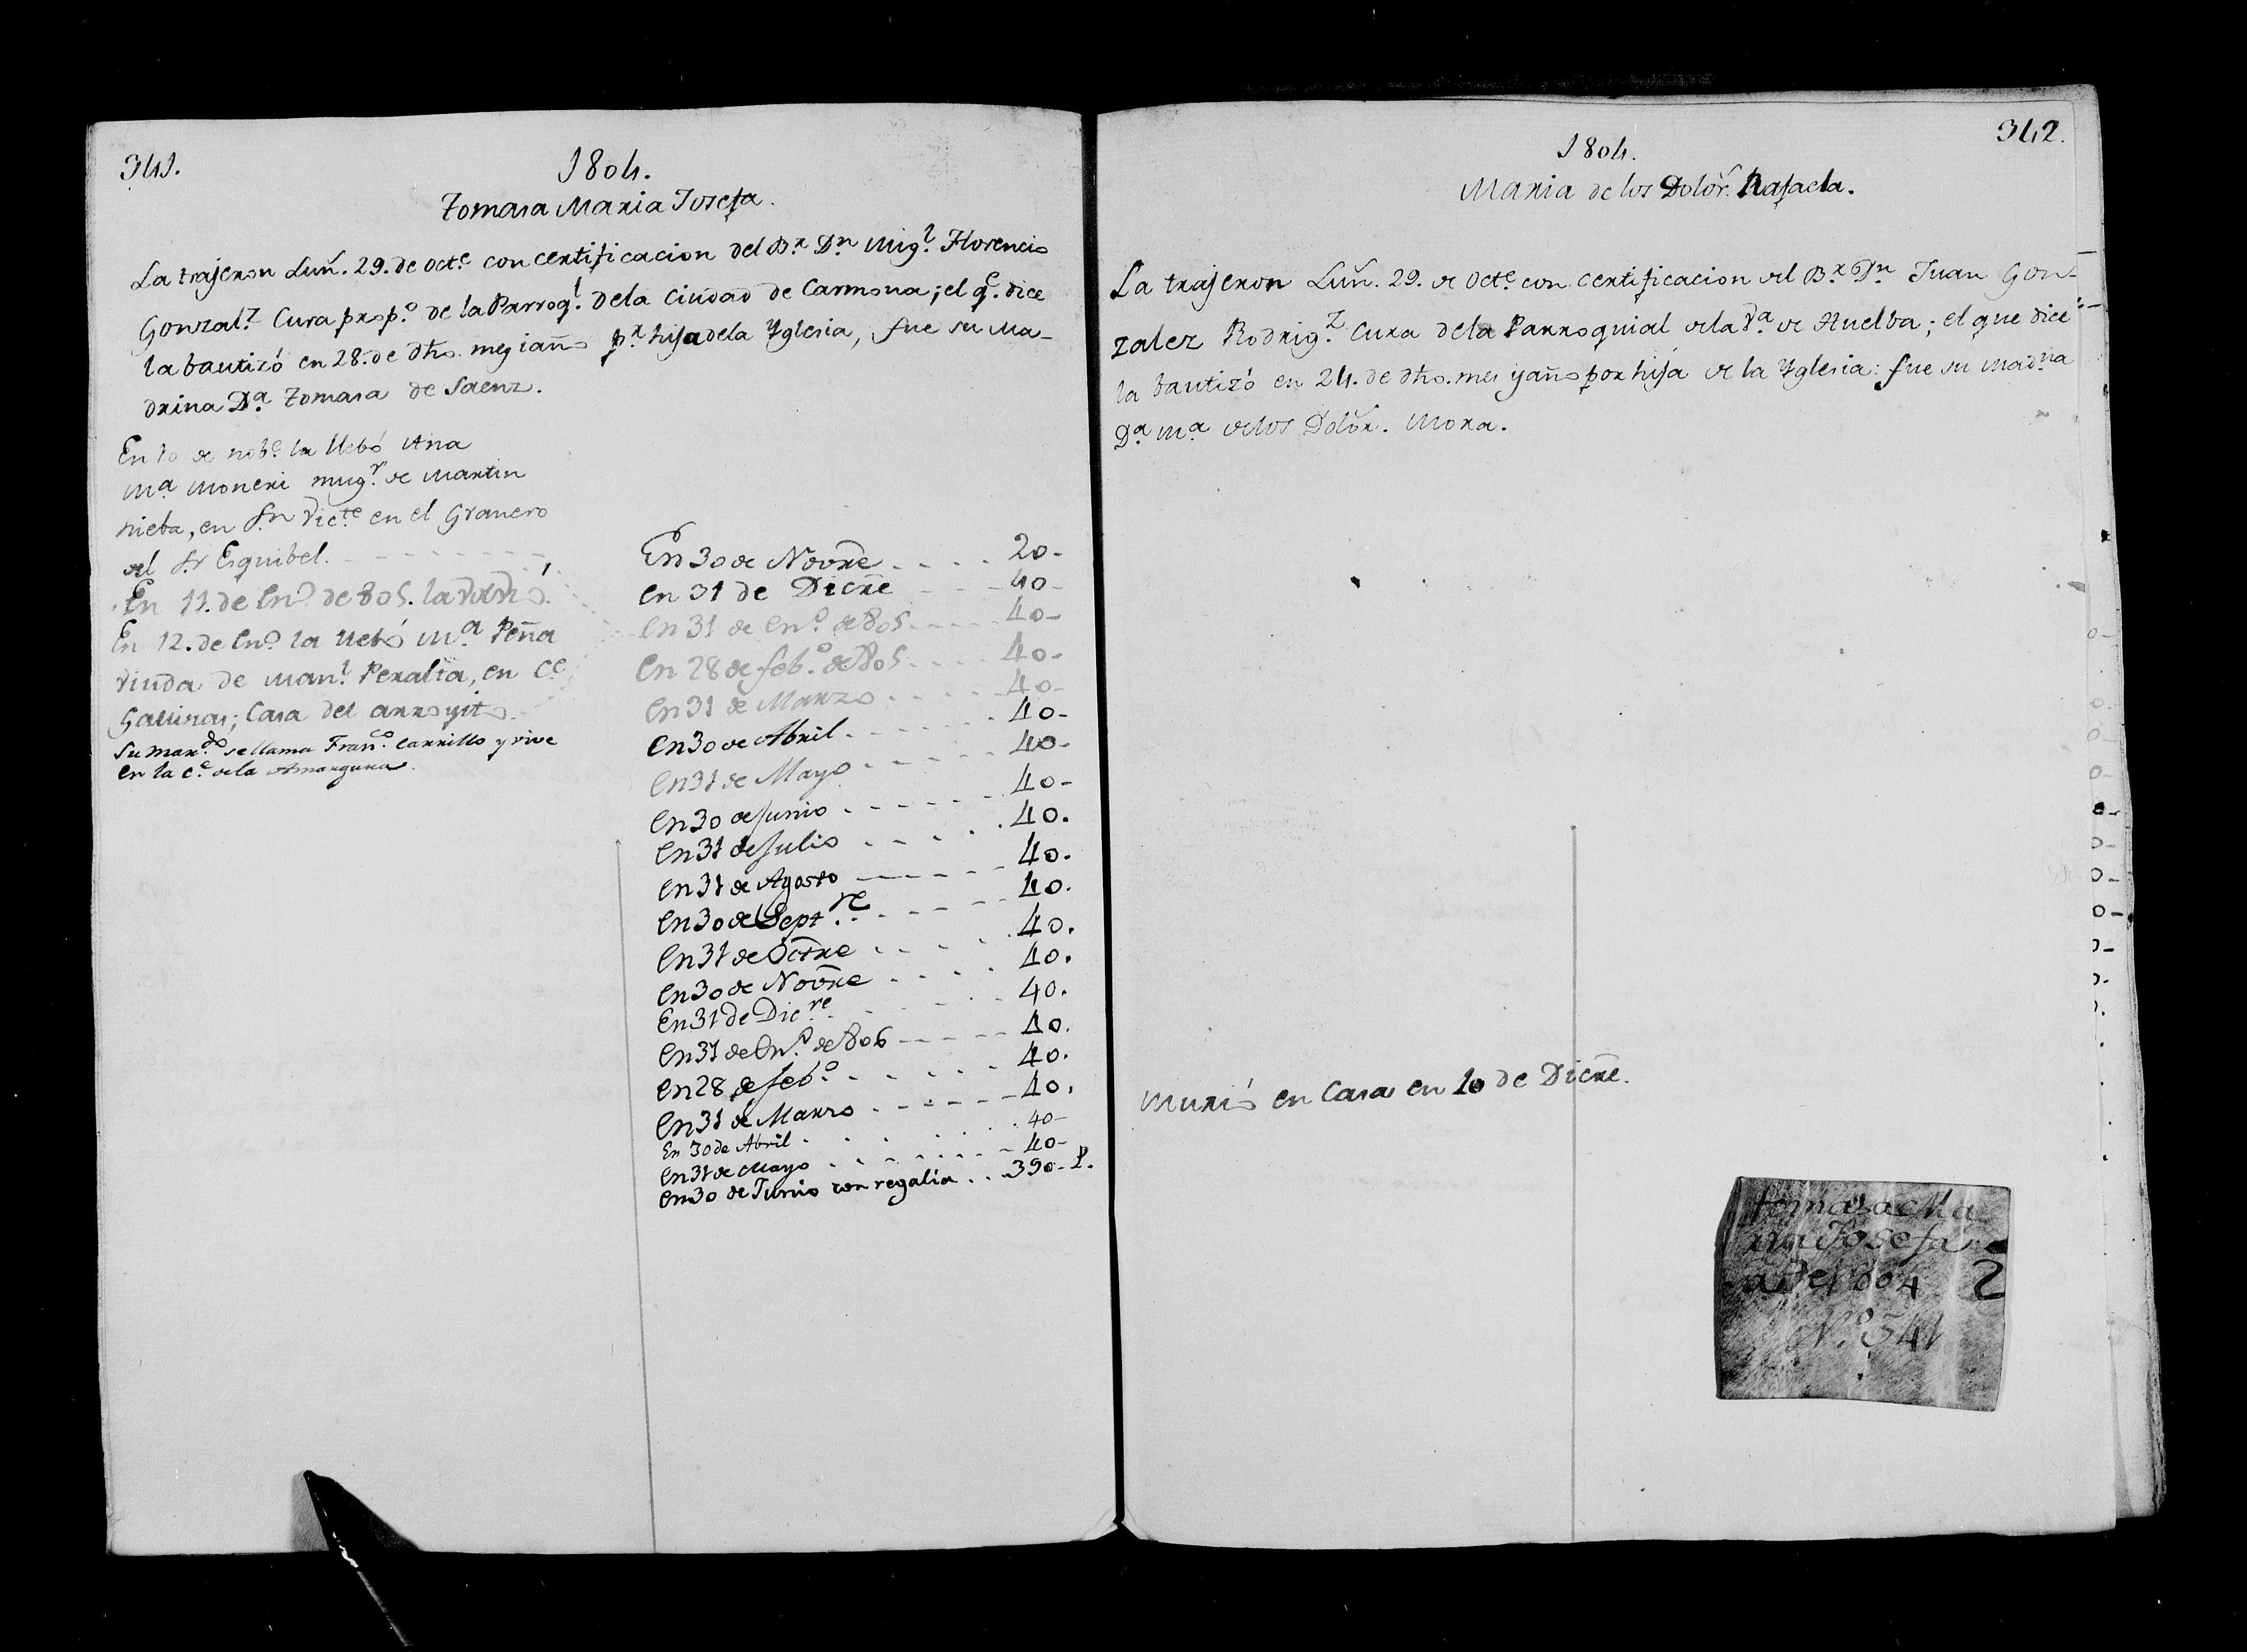 341.
1804.
Tomasa Maria Josefa.
La trajeron Lun. 29. de Octe. con certificacion del Br. Dn. Migl. Florencio
Gonzalz. Cura prop.o de la Parroql. dela Ciudad de Carmona; el qe. dice
la bautizó en 28. de dho. mes i año pr. hija dela Yglesia, fue su Ma-
drina Da. Tomasa de Saenz.
En 10 de nobe. la llebó Ana
Ma. Moneri mugr. de Martin
nieba, en Sn. Victe. en el Granero
del Sr Esquibel.
En 11. de En.o de 805. la volvió.
En 12. de En.o la llebó Ma. Peña
viuda de Manl. Peralta, en Ce.
Gallinas; Casa del arroyito.
Su mar.do se llama Fran.co Carrillo y vive
en la ce. de la Amargura.
En 30 de Novre .... 20-
en 31 de Dicre - - - 40-
en 31 de En.o de 805 .... 40-
en 28 de feb.o de 805 .... 40-
en 31 de Marzo .... 40-
en 30 de Abril .... 40-
en 31 de Mayo .... 40-
en 30 de Junio .... 40-
en 31 de Julio .... 40.
en 31 de Agosto .... 40.
en 30 de Septre. .... 40.
en 31 de Octre .... 40.
en 30 de Novre .... 40.
En 31 de Dicre. .... 40.
en 31 de En.o de 806 .... 40.
en 28 de feb.o .... 40.
en 31 de Marzo .... 40.
En 30 de Abril .... 40-
en 31 de Mayo .... 40-
en 30 de Junio con regalia ... 390-
342.
1804.
Maria de los Dolor. Rafaela.
La trajeron Lun. 29. de Octe. con certificacion del Br. Dn. Juan Gon-
zalez Rodrigz. Cura dela Parroquial dela Va. de Huelba; el que dice
la bautizó en 24. de dho. mes y año por hija de la Yglesia: fue su Madna
Da. Ma. delos Dolor. Mora.
Murió en Casa en 10 de Dicre.
tomasa Ma
ria Josefa
a de 1804 2
No. 341